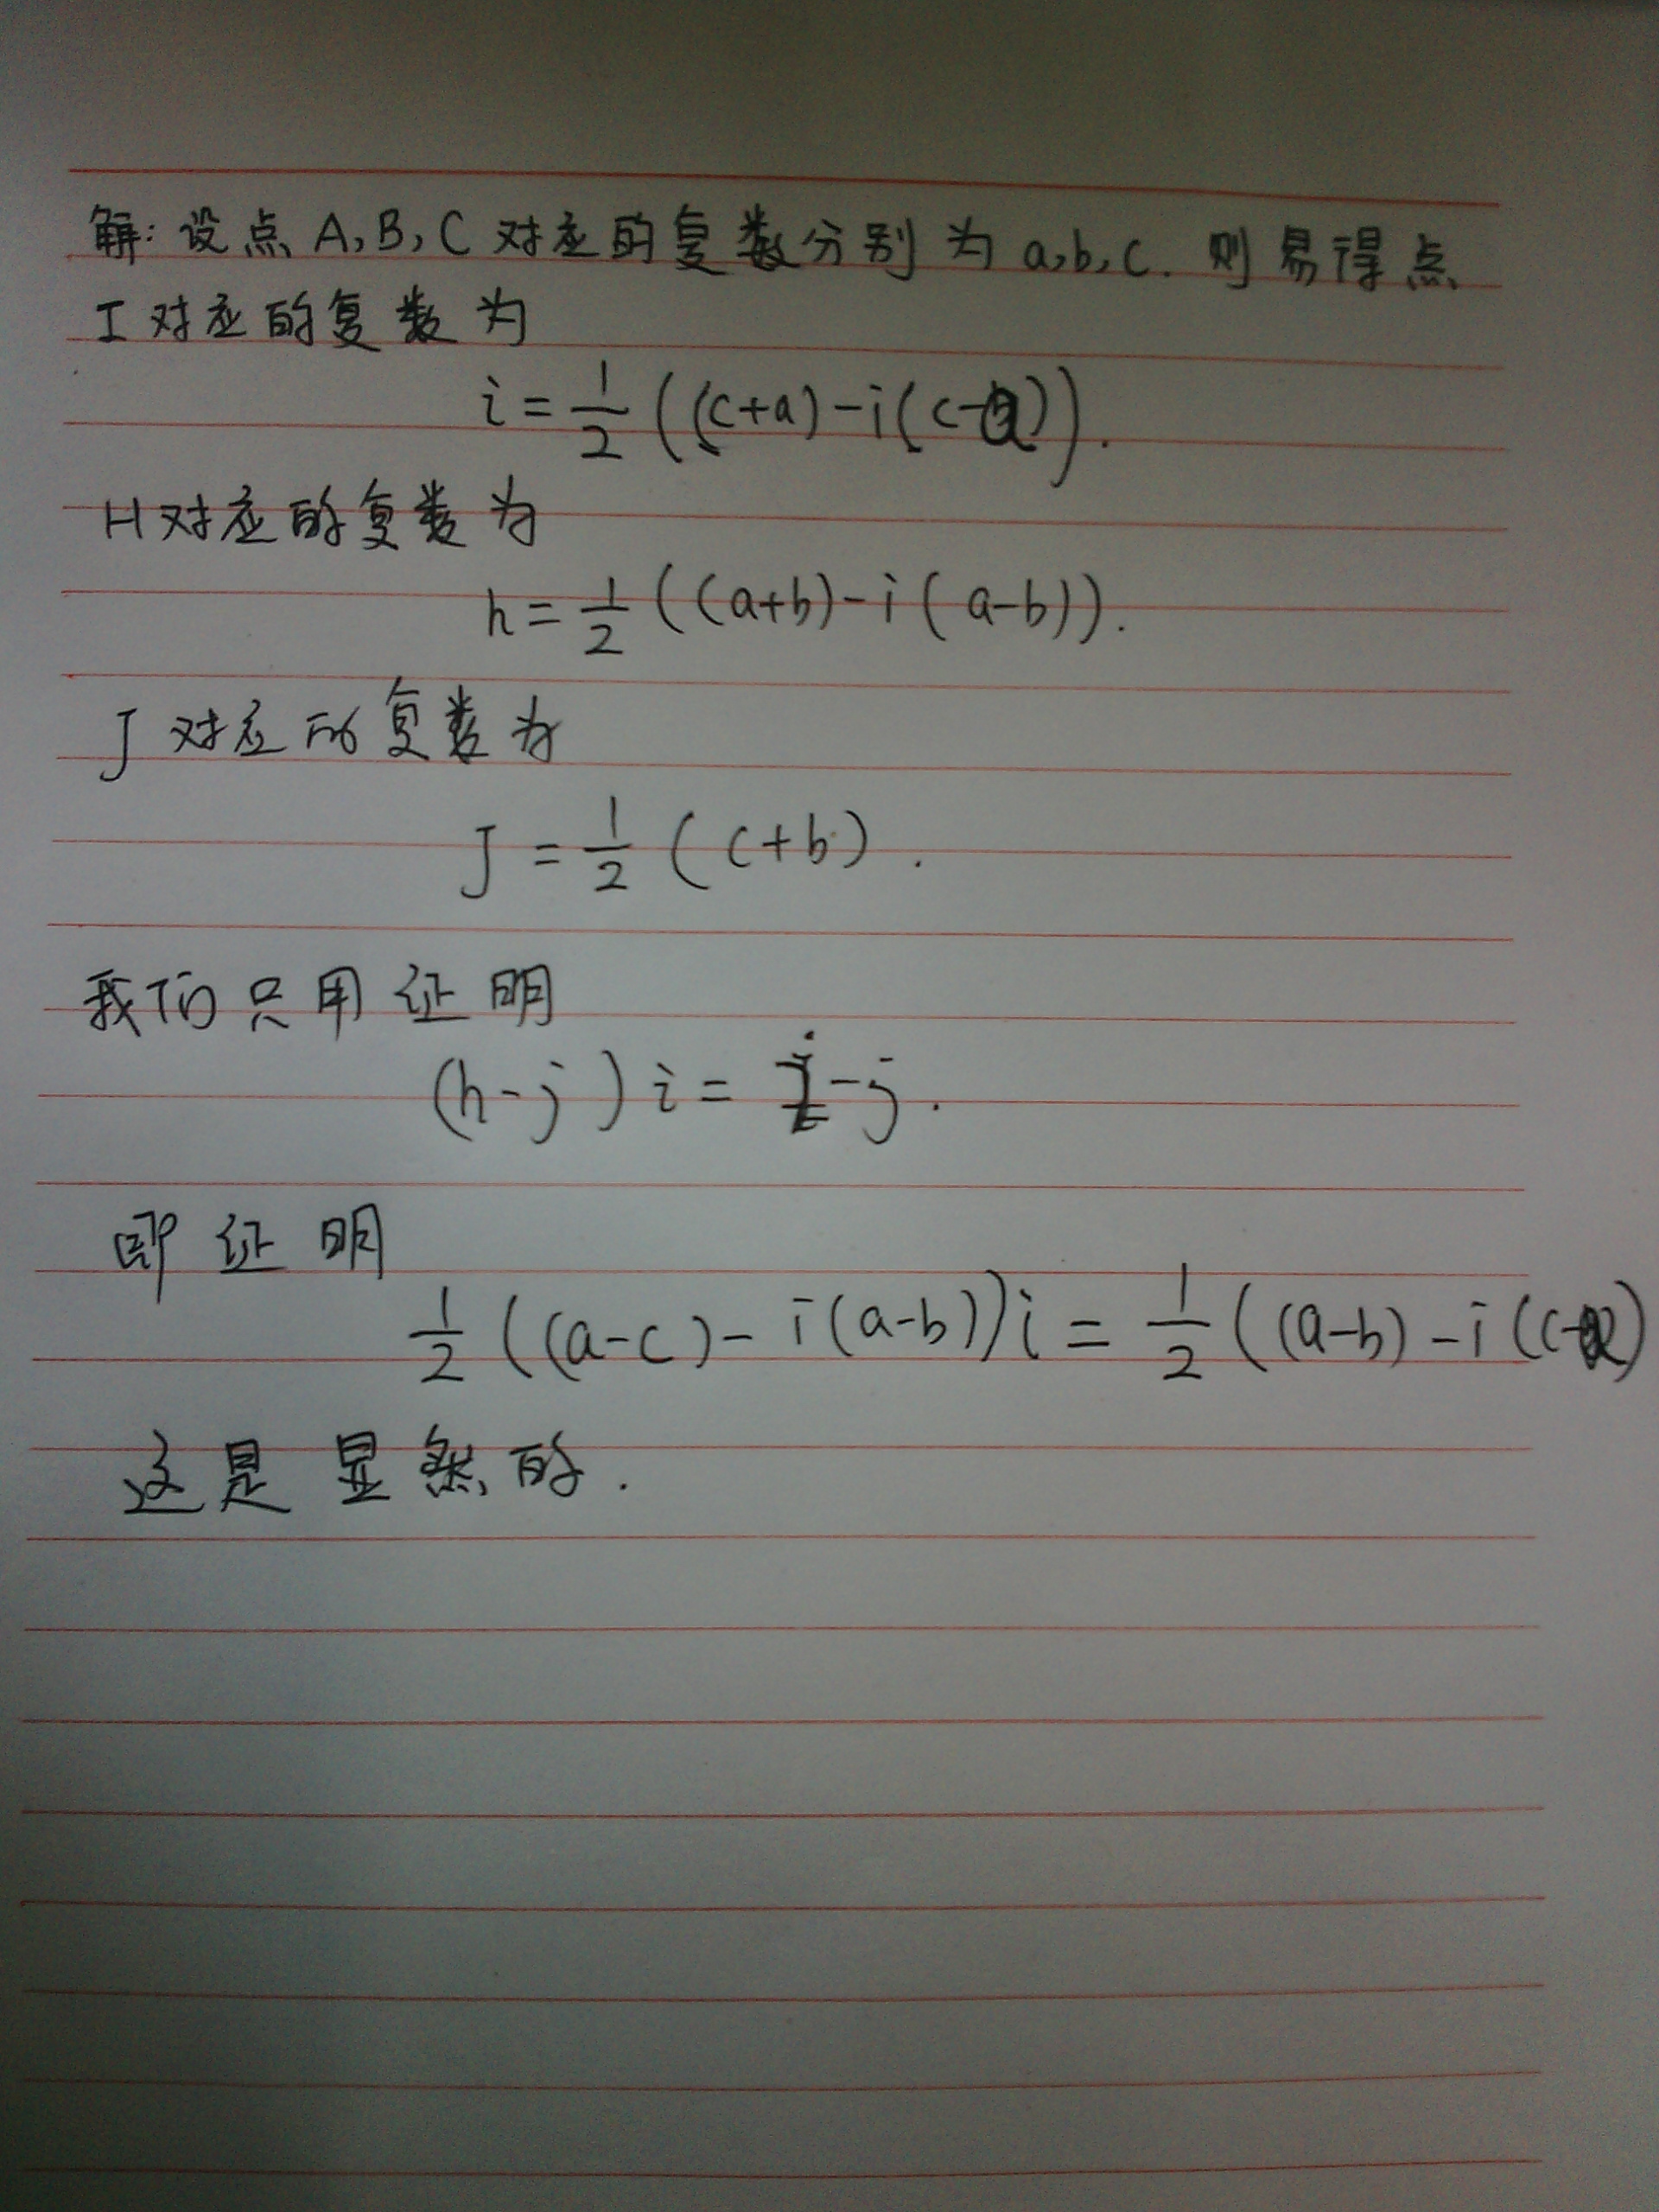 解:设点 A,B,C 对应的复数分别为 a,b,c. 则易得点
I 对应的复数为
i = 1/2 ((c+a) - i(c-a)).
H 对应的复数为
h = 1/2 ((a+b) - i(a-b)).
J 对应的复数为
J = 1/2 (c+b).
我们只用证明
(h-j)i = i-j.
即证明
1/2 ((a-c) - i(a-b))i = 1/2 ((a-b) - i(c-a)
这是显然的.